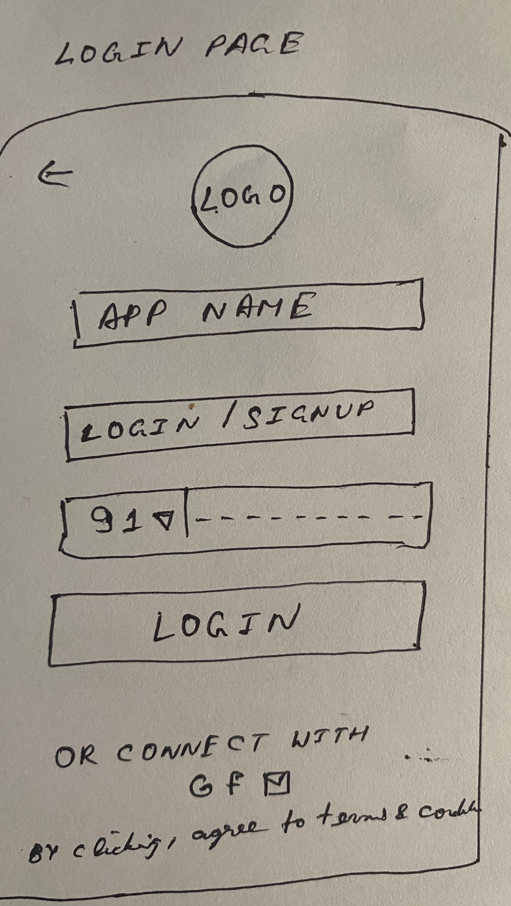 LOGIN PAGE
LOGO
APP NAME
LOGIN / SIGNUP
91
LOGIN
OR CONNECT WITH
G f
BY clicking, agree to terms &